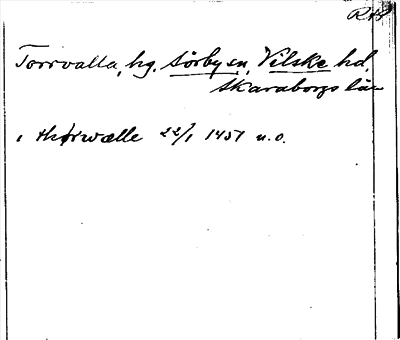 Torrvalla, hg. Sörby sn, Vilske hd.
Skaraborgs län
i thorwælle 22/1 1457 u.o.